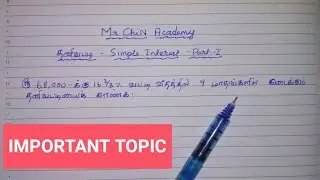 Mr Chin Academy
தனிவட்டி - Simple Interest - Part-I
ரூ 68,000-க்கு 16 2/3 % வட்டி வீதத்தில் 9 மாதங்களில் கிடைக்கும்
தனிவட்டியைக் காண்க.
IMPORTANT TOPIC